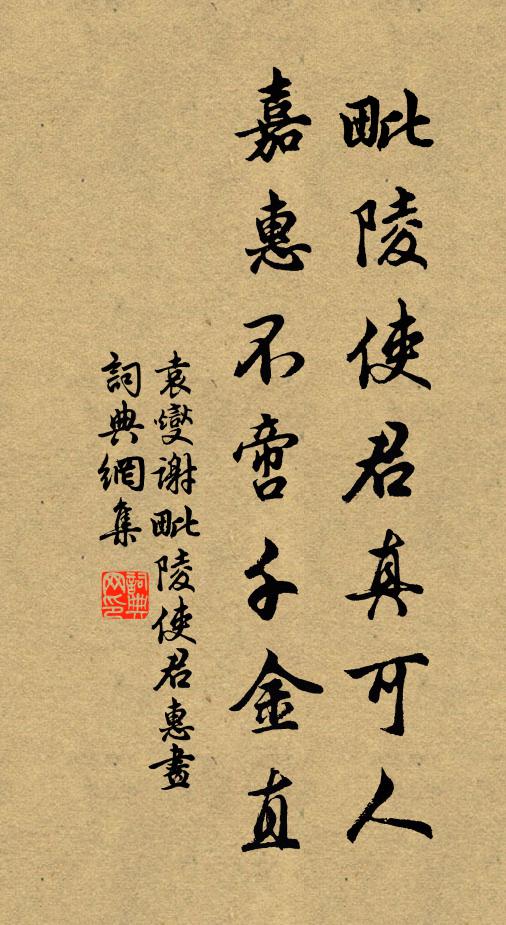 毗陵使君真可人
嘉惠不啻千金直
袁燮谢毗陵使君惠畫
詞典網集
詞典网印